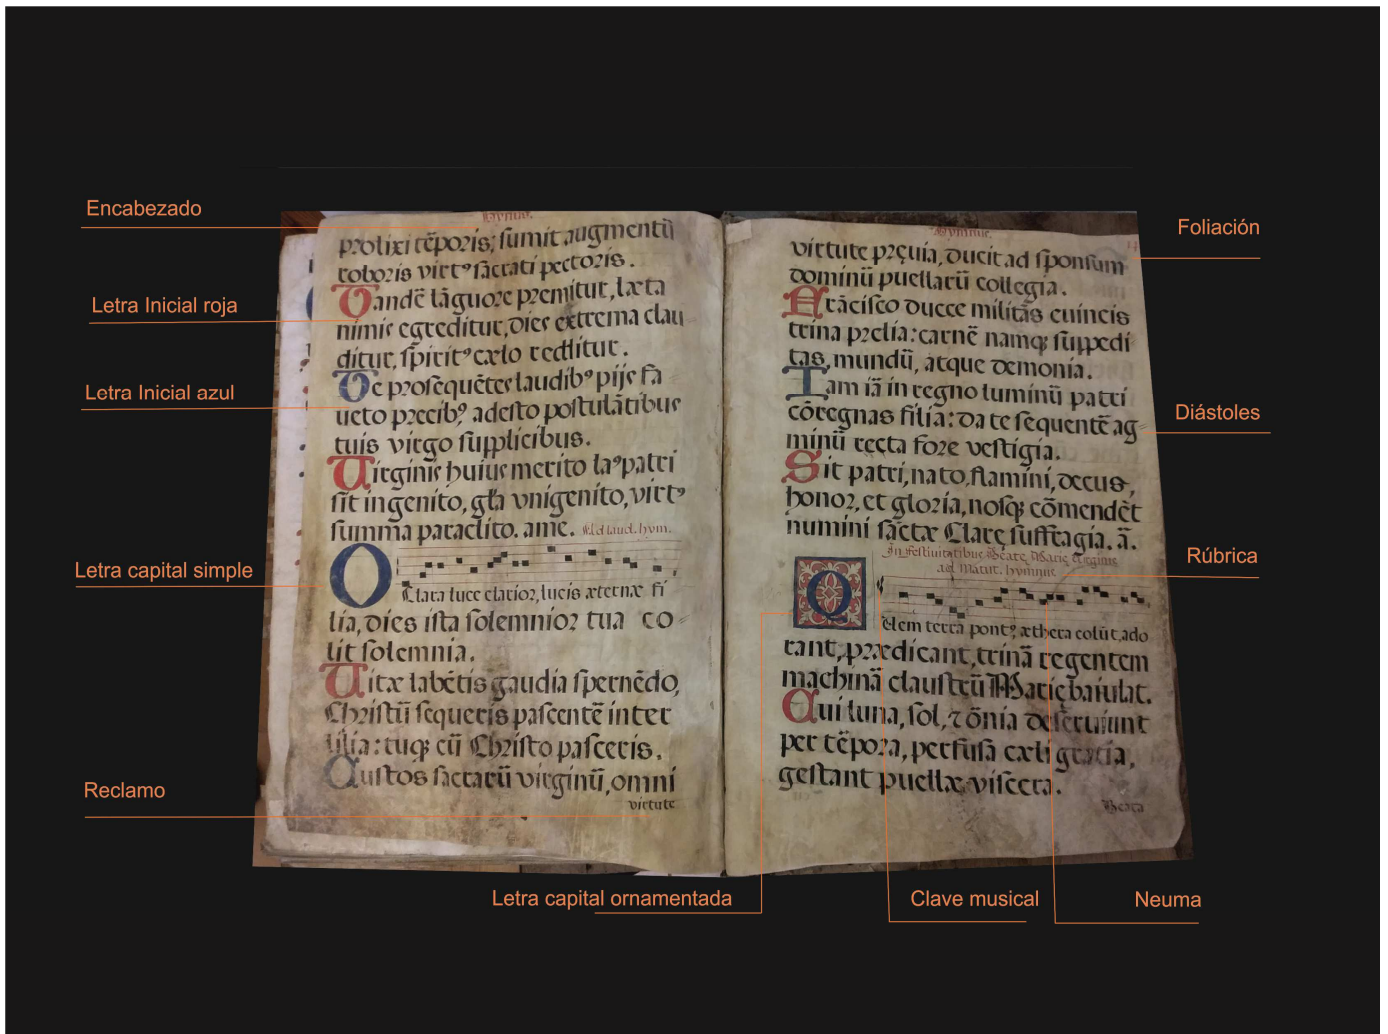 Encabezado
Letra Inicial roja
Letra Inicial azul
Letra capital simple
Reclamo
Hymnus.
prolixi tẽporis, sumit augmentũ
roboris virtꝰ sacrati pectoris.
Tandẽ lãguore premitur, læta
nimis egreditur, dies extrema clau
ditur, spiritꝰ cælo redditur.
Te prosequẽtes laudibꝰ pijs fa
ueto precibꝰ, adesto postulãtibus
tuis virgo supplicibus.
Virginis huius merito lausꝰ patri
sit ingenito, gl̃a vnigenito, virtꝰ
summa paraclito. ame. Ad laud. hym.
O Clara luce clarior, lucis æternæ fi
lia, dies ista solemnior tua co
lit solemnia.
Vitæ labẽtis gaudia spernẽdo,
Christũ sequeris pascentẽ inter
lilia: tuqꝫ cũ Christo pasceris.
Custos sacrarũ virginũ, omni
virtute
Hymnus.
virtute pręuia, ducit ad sponsum
dominũ puellarũ collegia.
Frãcisco ducce militãs euincis
trina prelia: carnẽ namqꝫ suppedi
tas, mundũ, atque demonia.
Iam iã in regno luminũ patri
cõregnas filia: da te sequentẽ ag
minũ recta fore vestigia.
Sit patri, nato, flamini, decus,
honor, et gloria, nosqꝫ cõmendẽt
numini sãctæ Clarę suffragia. ã.
In festiuitatibus Beatę Marię virginis
ad Matut. hymnus
Quem terra pontꝰ æthera colũt, ado
rant, prædicant, trinã regentem
machinã claustrũ Marię baiulat.
Cui luna, sol, ⁊ õnia deseruiunt
per tẽpora, perfusa cæli gratia,
gestant puellæ viscera.
Beata
Foliación
Diástoles
Rúbrica
Letra capital ornamentada
Clave musical
Neuma